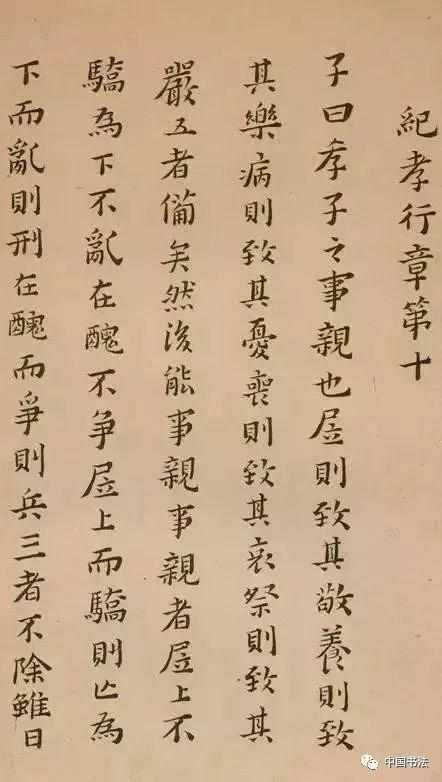 紀孝行章第十
子曰孝子之事親也居則致其敬養則致
其樂病則致其憂喪則致其哀祭則致其
嚴五者備矣然後能事親事親者居上不
驕為下不亂在醜不爭居上而驕則亡為
下而亂則刑在醜而爭則兵三者不除雖日
中国书法